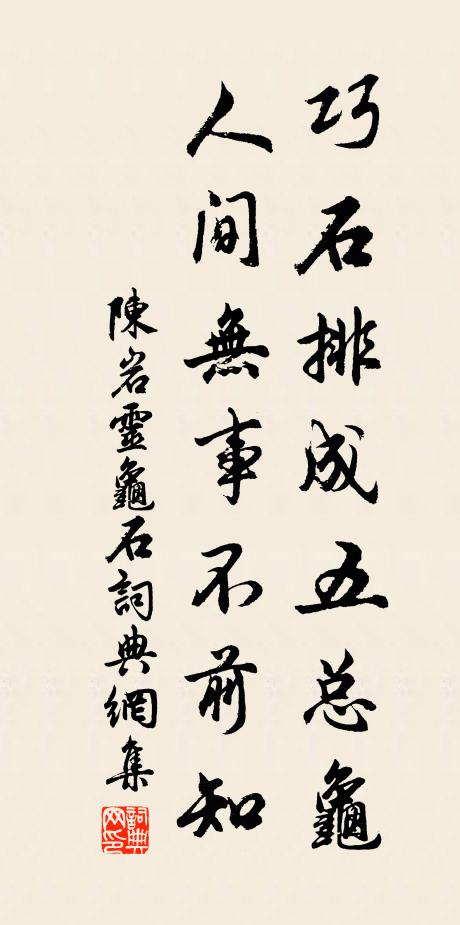 巧石排成五总龜
人间無事不前知
陳岩靈龜石詞典網集
詞典网印